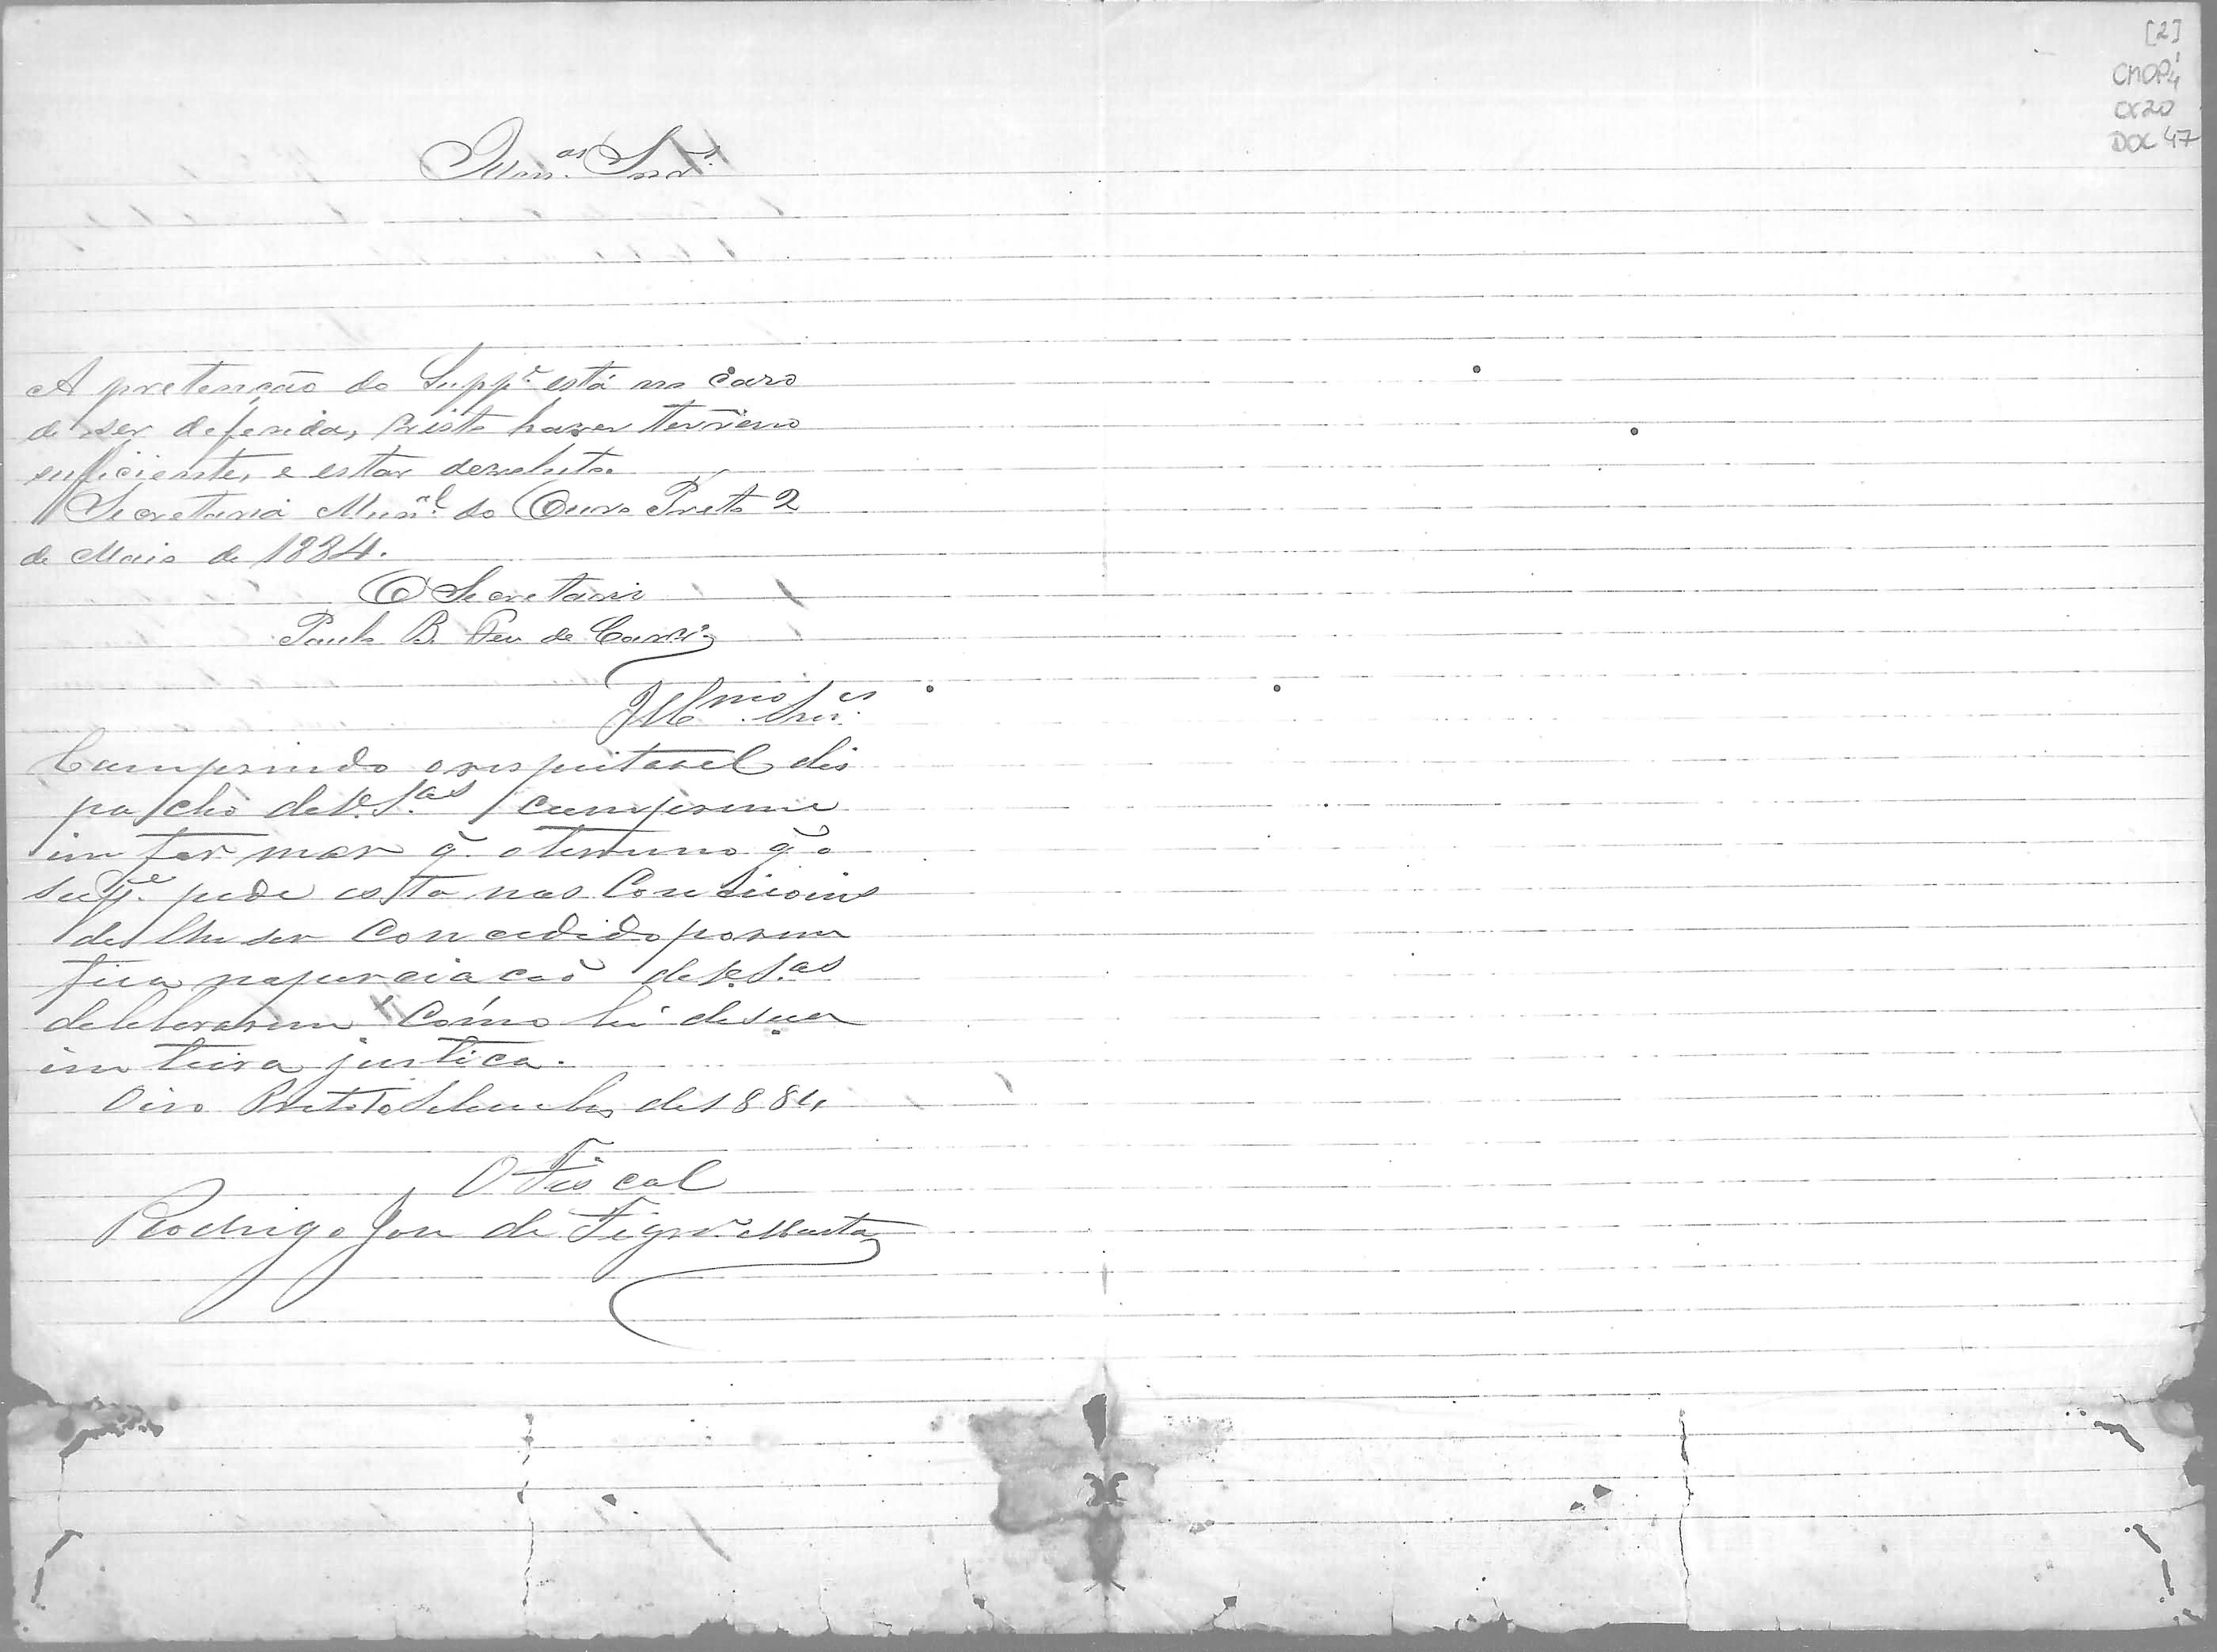 [2]
CMOP4
CX20
DOC 47
Illmos. Snrs.
A pretenção do Suppe. está no caso
de ser deferida, visto haver terreno
sufficiente, e estar devoluto.
Secretaria Munal. do Ouro Preto 2
de Maio de 1884.
O Secretario
Paulo B. de
Illmo. Snres.
Cumprindo o respeitavel dis
pacho de V. Sas. cumpreme
imformar q̃. o terreno q̃ o
supe. pede está nas Condicoins
de lhe ser Concedido porem
fica deV. Sas.
deleberarem Cómo hé de sua
imteira justica.
Oiro Preto de 1884
O Fiscal
Rodrigo Jose de Figrdo.